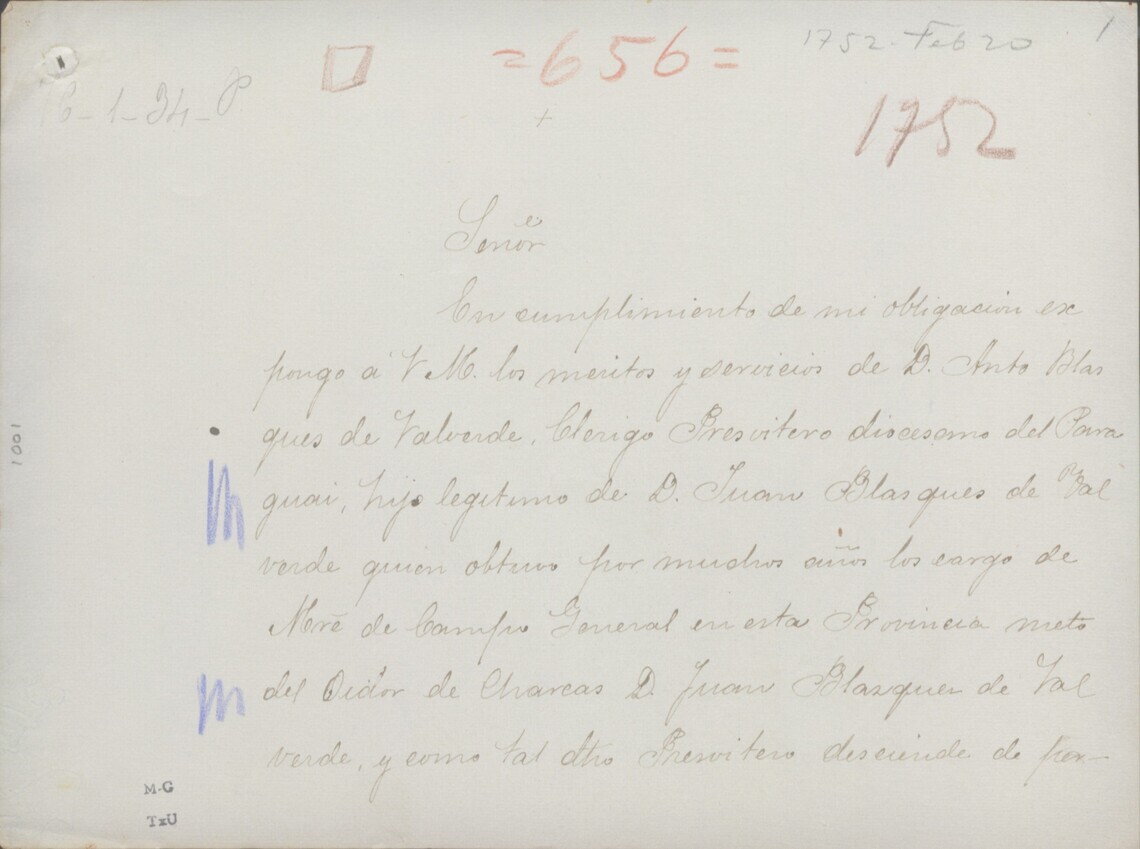 1752-Feb 20
1
= 656 =
76-1-34-P
+
1752
Señor
En cumplimiento de mi obligación ex
pongo á V M. los meritos y servicios de D. Anto Blas
ques de Valverde, Clerigo Presvitero diocesano del Para
guai, hijo legitimo de D. Juan Blasques de Val
verde quien obtuvo por muchos años los cargo de
Mre de Campo General en esta Provincia nieto
del Oidor de Charcas D. Juan Blazquez de Val
verde, y como tal dho Presvitero desciende de per-
1001
M-G
TxU